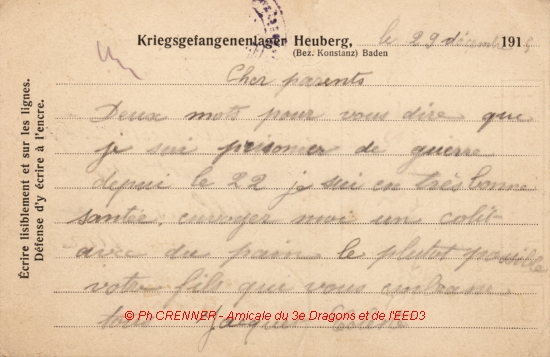 Kriegsgefangenenlager Heuberg, le 29 décembre 1915
(Bez. Konstanz) Baden
Cher parents
Deux mots pour vous dire que
je sui prisonier de guerre
depui le 22 je sui en très bonne
santée, envoyer moi un colit
avec du pain le plutot possible
votre fils qui vous embrasse
tous Jacques
Écrire lisiblement et sur les lignes.
Défense d'y écrire à l'encre.
© Ph CRENNER - Amicale du 3e Dragons et de l'EED3